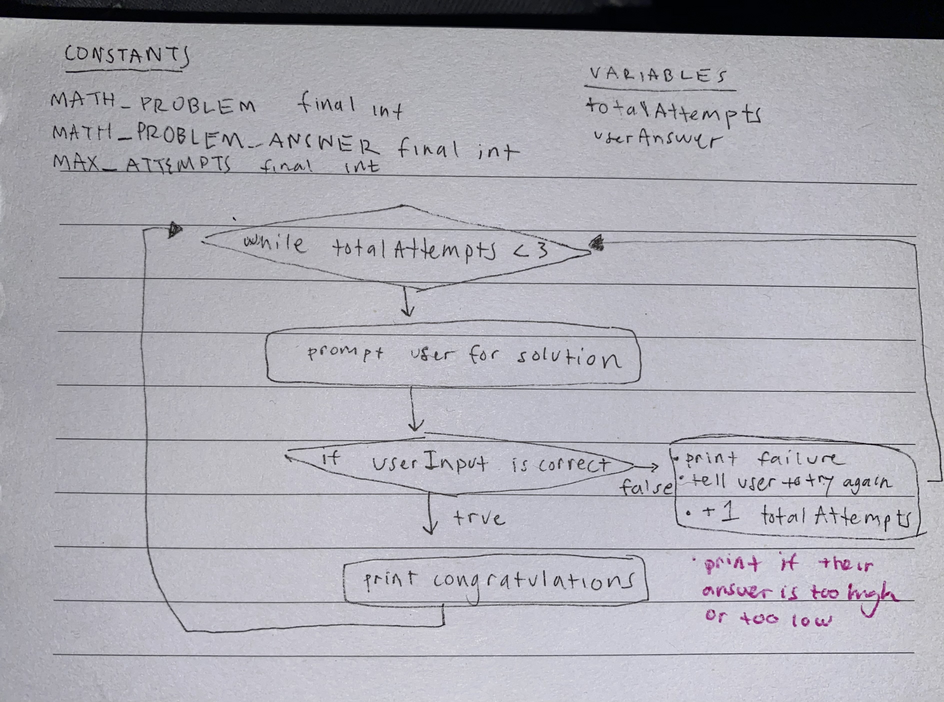 CONSTANTS
MATH_PROBLEM final int
MATH_PROBLEM_ANSWER final int
MAX_ATTEMPTS final int
VARIABLES
totalAttempts
userAnswer
while totalAttempts <3
prompt user for solution
if userInput is correct
false
• print failure
• tell user to try again
• +1 totalAttempts
true
print congratulations
• print if their
answer is too high
or too low